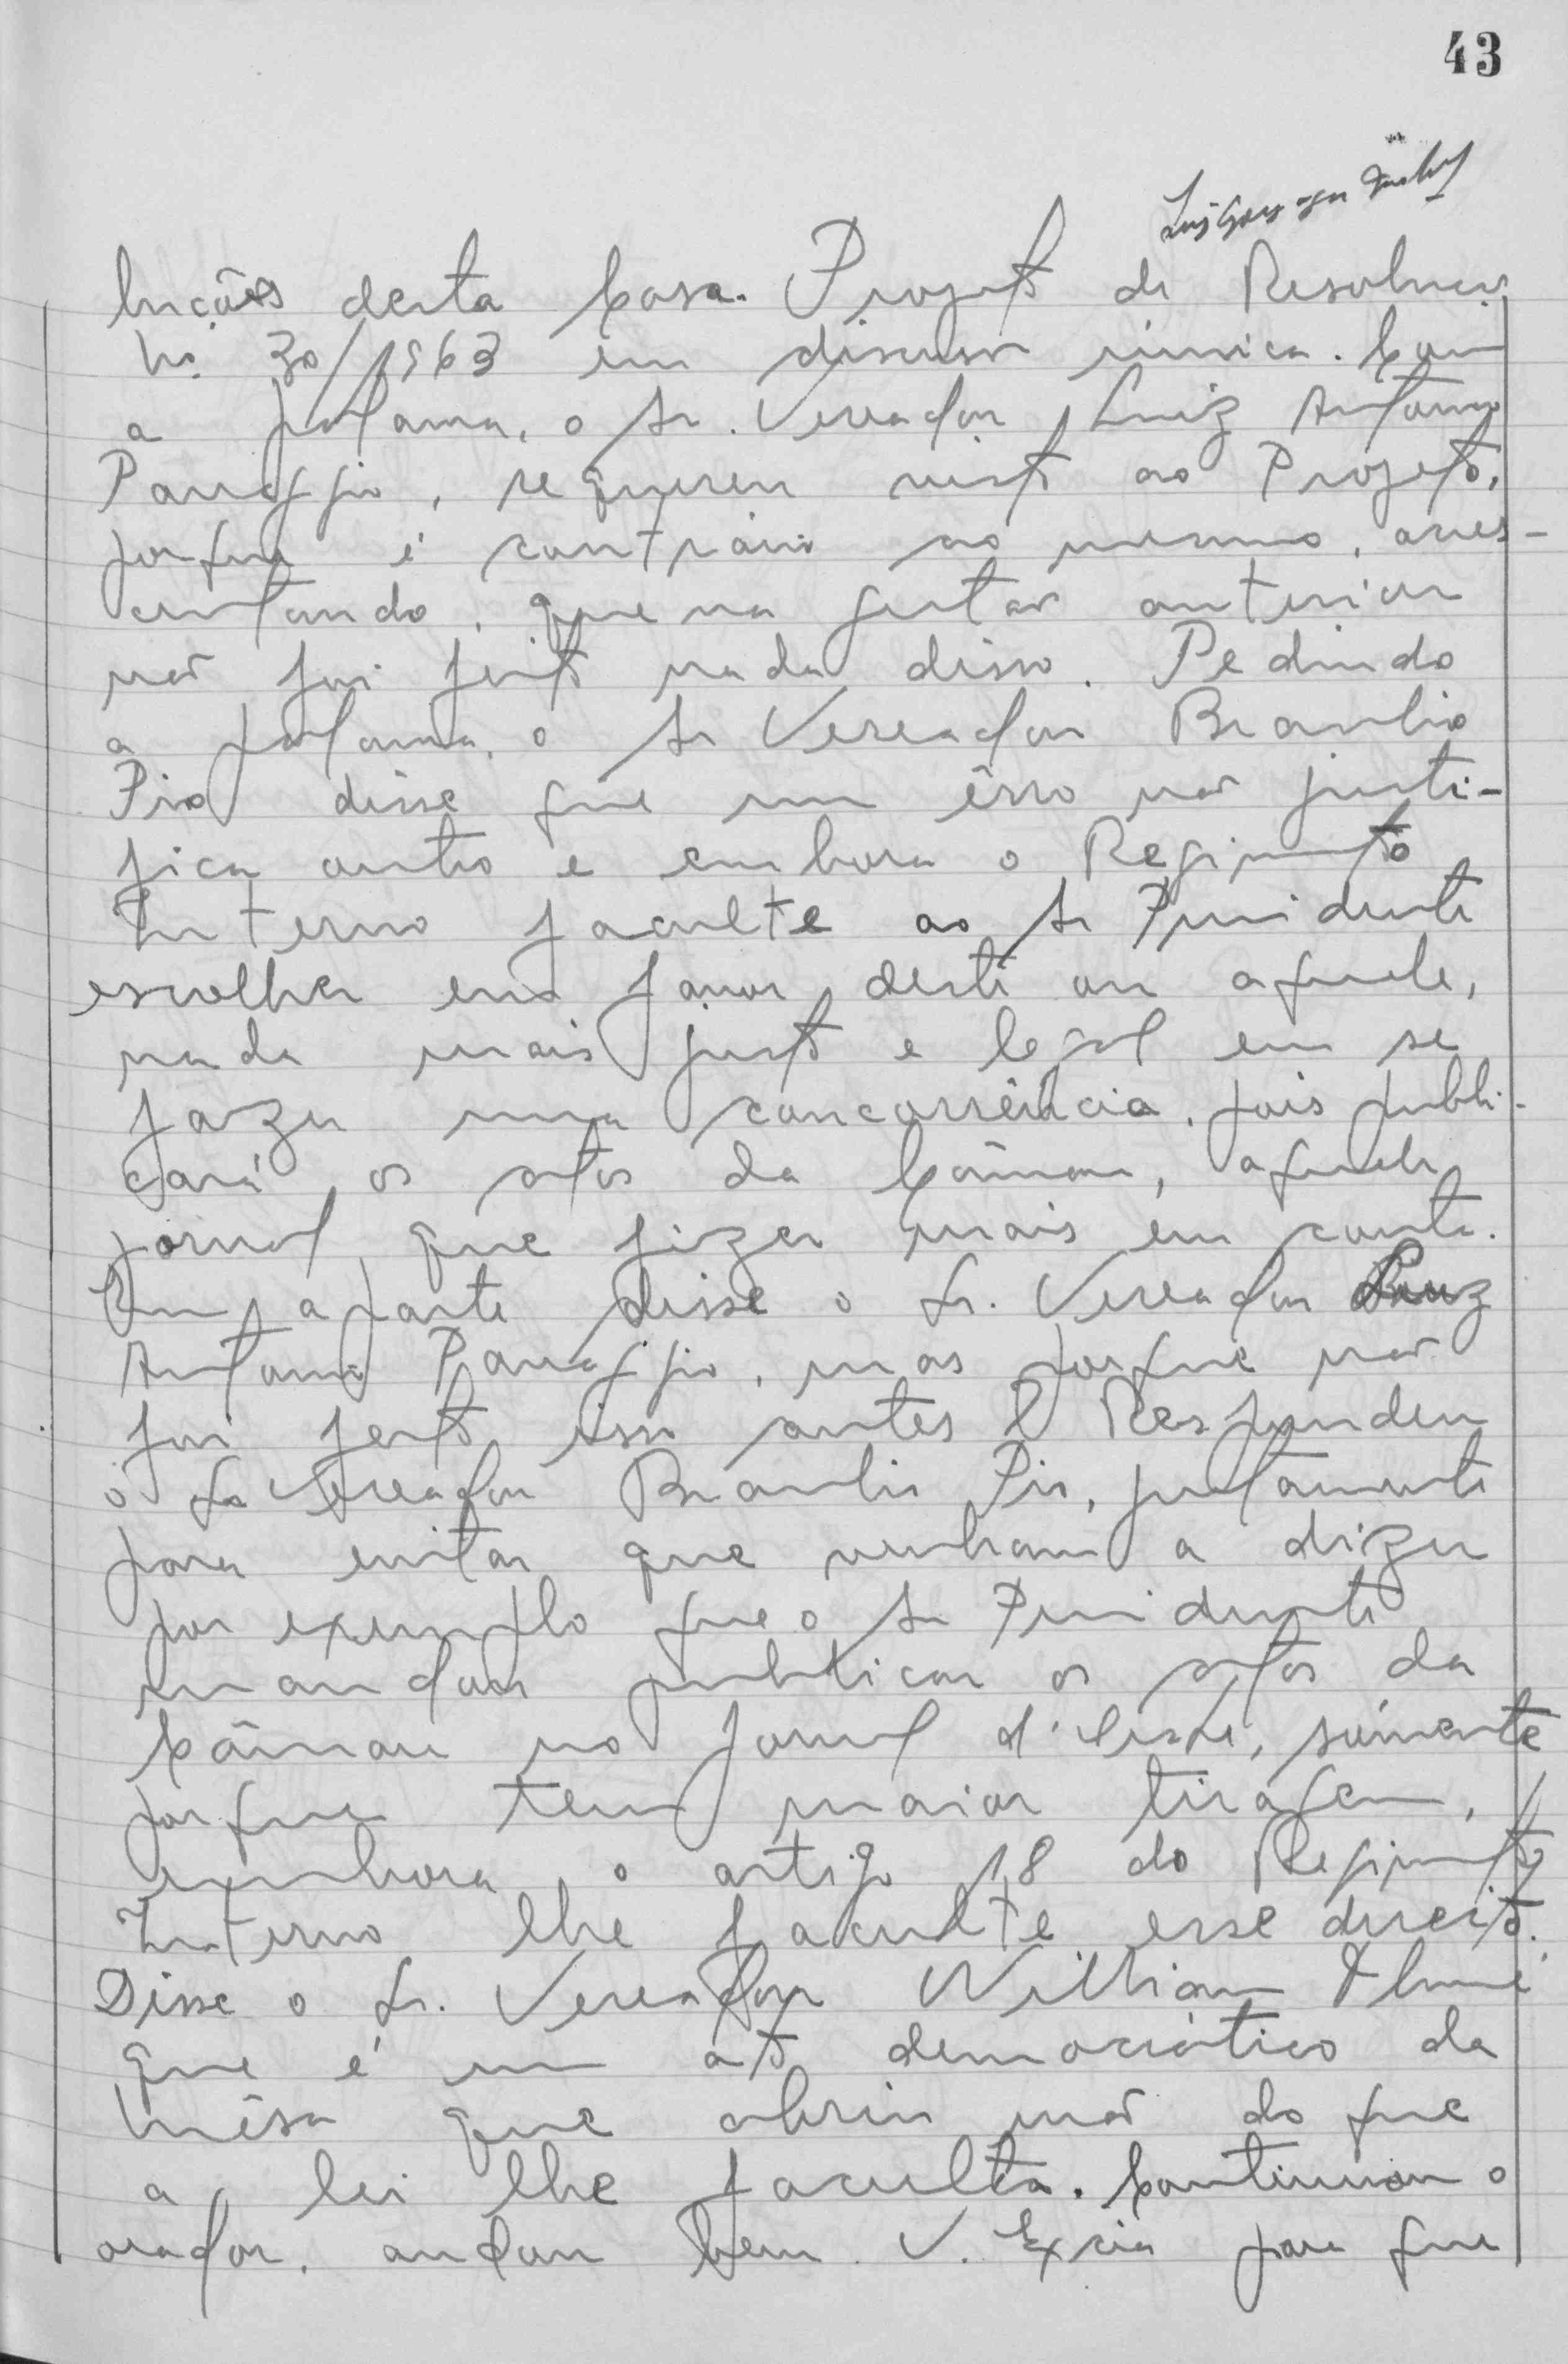 43
luções desta Casa. Projeto de Resolução
nº 30/1963 em discussão única. Com
a palavra, o Sr. Vereador Luiz Antonio
Panaggio, requereu visto ao Projeto,
porque é contrário ao mesmo, acres-
centando, que na gestão anterior
não foi feito nada disso. Pedindo
a palavra, o Sr Vereador Braulio
Pio disse que um êrro não justi-
fica outro e embora o Regimento
Interno faculte ao Sr Presidente
escolher em favor deste ou aquele,
nada mais justo e legal em se
fazer uma concorrência, pois publi-
cará os atos da Câmara, aquele
jornal que fizer mais em conta.
Em aparte disse o Sr. Vereador Luiz
Antonio Panaggio, mas porque não
foi feito isso antes? Respondeu
o Sr Vereador Braulio Pio, justamente
para evitar que venham a dizer
por exemplo que o Sr Presidente
mandou publicar os atos da
Câmara no Jornal d', sómente
porque tem maior tiragem,
embora o artigo 18 do Regimento
Interno lhe faculte esse direito.
Disse o Sr. Vereador William
que é um ato democrático da
mêsa que abriu mão do que
a lei lhe faculta. Continuou o
orador, andou bem V. Excia para que